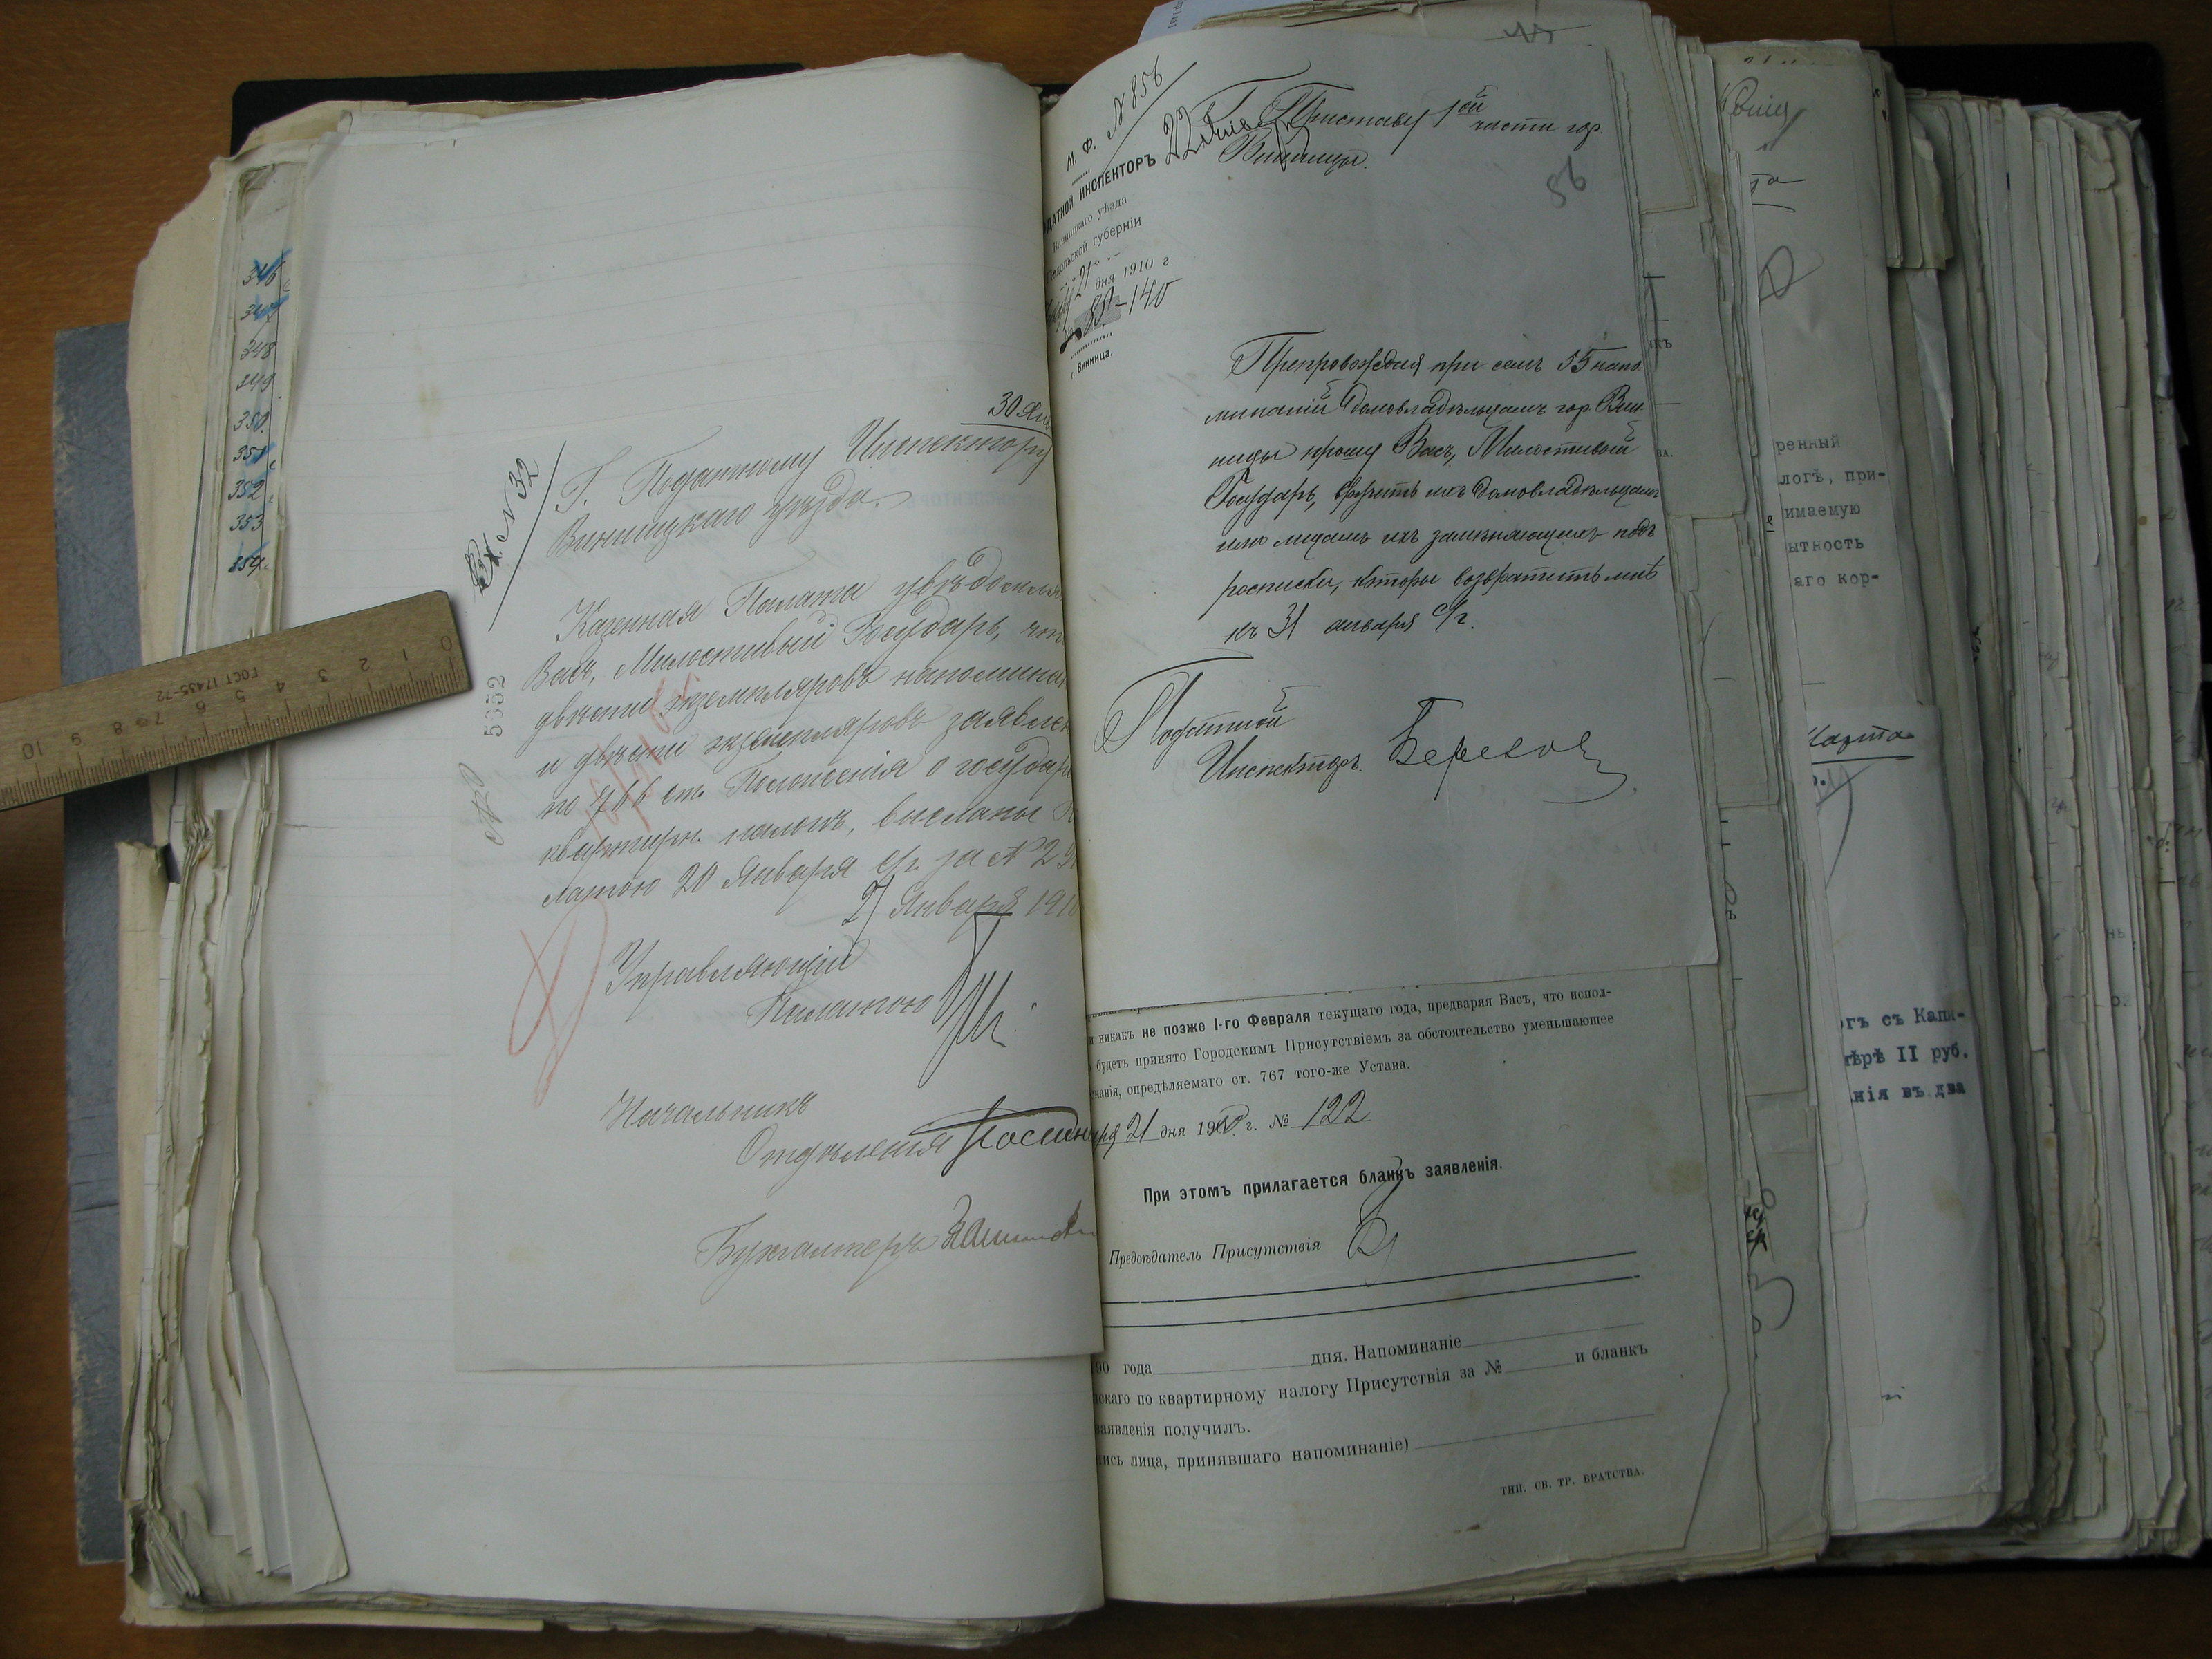 346
348
349
350
351
352
353
354
30 Янв
Вх. N 32
Г. Податному Инспектору
Винницкаго уѣзда.
Казенная Палата увѣдомля
Васъ, Милостивый Государь, что
двѣсти экземпляровъ напомина
и двѣсти экземпляровъ заявлен
по 766 ст. Положенія о государ
квартирн. налогѣ, высланы П
латою 20 Января с/г. за №
27 Января 1910
Управляющій
Палатою
Начальникъ
Отдѣленія
Бухгалтеръ
5352
0 1 2 3 4 5 6 7 8 9 10
ГОСТ 17435-72
N 856
М. Ф.
ДАТНОЙ ИНСПЕКТОРЪ
Винницкаго уѣзда
Подольской губерніи
21 дня 1910 г
140
г. Винница.
Г. Приставу 1ой части гор.
Винницы.
56
Препровождая при семъ 55 напо
минаній домовладѣльцамъ гор. Вин
ницы прошу Васъ, Милостивый
Государь, вручить ихъ домовладѣльцамъ
или лицамъ ихъ замѣняющихъ подъ
росписки, которы возвратить мнѣ
къ 31 января с/г.
Податной
Инспекторъ
и никакъ не позже 1-го Февраля текущаго года, предваряя Васъ, что испол-
будетъ принято Городскимъ Присутствіемъ за обстоятельство уменьшающее
сканія, опредѣляемаго ст. 767 того-же Устава.
21 дня 1910 г. № 122
При этомъ прилагается бланкъ заявленія.
Предсѣдатель Присутствія
90 года дня. Напоминаніе
скаго по квартирному налогу Присутствія за № и бланкъ
заявленія получилъ.
ись лица, принявшаго напоминаніе)
ТИП. СВ. ТР. БРАТСТВА.
ренный
логѣ, при-
имаемую
ытность
аго кор-
Марта
огъ съ Капи-
мѣрѣ II руб.
нія въ два